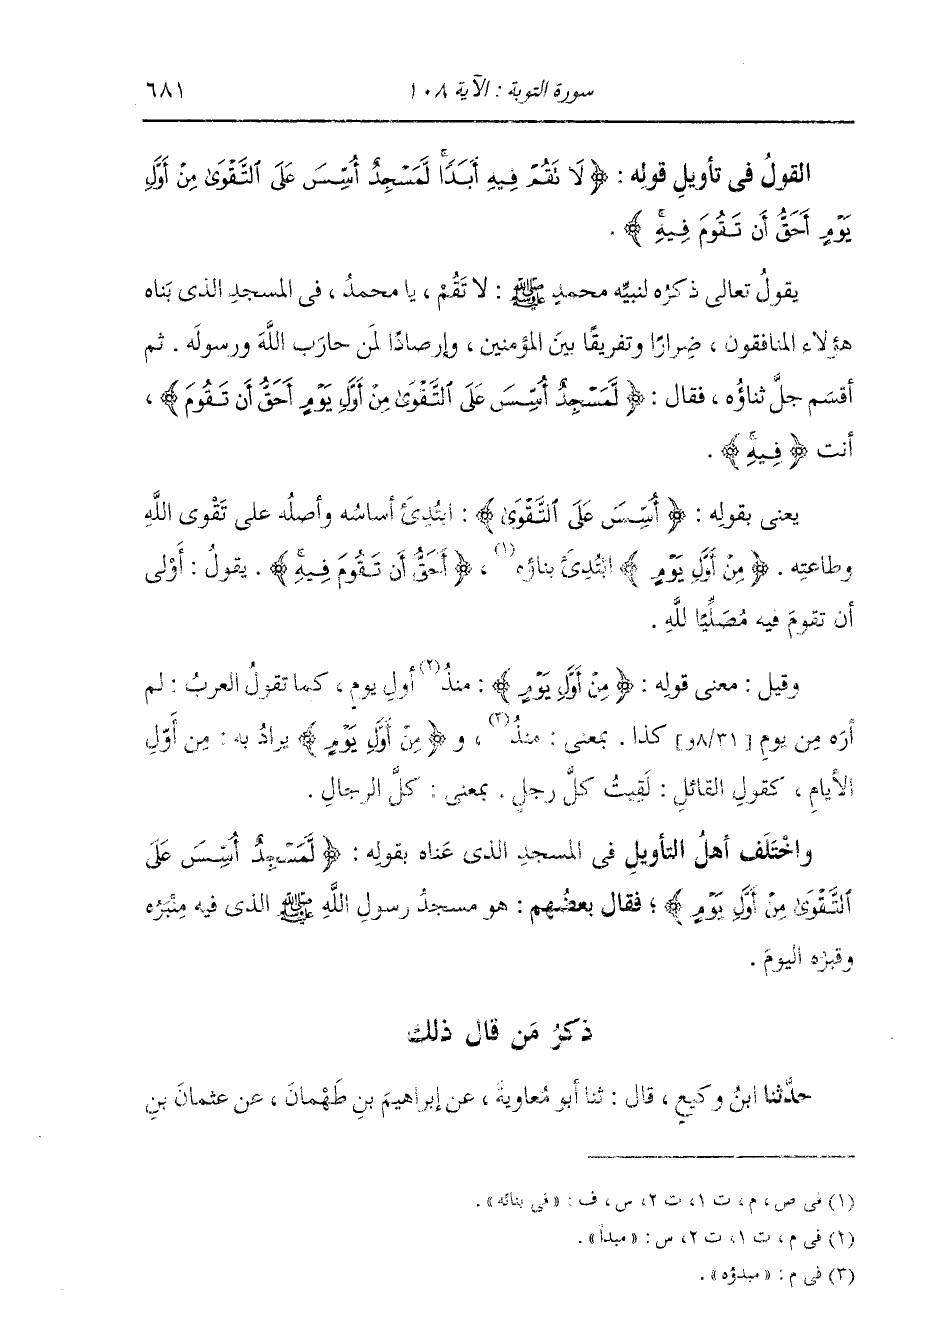 سورة التوبة : الآية ١٠٨ ٦٨١
القولُ فى تأويلِ قولِه : ﴿ لَا نَقُمْ فِيهِ أَبَدًاۚ لَّمَسْجِدٌ أُسِّسَ عَلَى ٱلتَّقْوَىٰ مِنْ أَوَّلِ
يَوْمٍ أَحَقُّ أَن تَقُومَ فِيهِۚ ﴾ .
يقولُ تعالى ذكرُه لنبيِّه محمدٍ ﷺ : لا تَقُمْ ، يا محمدُ ، فى المسجدِ الذى بَناه
هؤلاء المنافقون ، ضِرارًا وتفريقًا بينَ المؤمنين ، وإرصادًا لمَن حارَب اللَّهَ ورسولَه . ثم
أقسَم جلَّ ثناؤُه ، فقال : ﴿ لَّمَسْجِدٌ أُسِّسَ عَلَى ٱلتَّقْوَىٰ مِنْ أَوَّلِ يَوْمٍ أَحَقُّ أَن تَقُومَ ﴾ ،
أنت ﴿ فِيهِۚ ﴾ .
يعنى بقولِه : ﴿ أُسِّسَ عَلَى ٱلتَّقْوَىٰ ﴾ : ابتُدِئَ أساسُه وأصلُه على تَقْوى اللَّهِ
وطاعتِه . ﴿ مِنْ أَوَّلِ يَوْمٍ ﴾ ابتُدِئَ بناؤه(١) ، ﴿ أَحَقُّ أَن تَقُومَ فِيهِۚ ﴾ . يقولُ : أَوْلى
أن تقومَ فيه مُصَلِّيًا للَّهِ .
وقيل : معنى قولِه : ﴿ مِنْ أَوَّلِ يَوْمٍ ﴾ : منذُ(٢) أولِ يومٍ ، كما تقولُ العربُ : لم
أرَه مِن يومِ [٨/٣١و] كذا . بمعنى : منذُ(٣) ، و ﴿ مِنْ أَوَّلِ يَوْمٍ ﴾ يرادُ به : مِن أوّلِ
الأيامِ ، كقولِ القائلِ : لَقِيتُ كلَّ رجلٍ . بمعنى : كلَّ الرجالِ .
واخْتَلَف أهلُ التأويلِ فى المسجدِ الذى عَناه بقولِه : ﴿ لَّمَسْجِدٌ أُسِّسَ عَلَى
ٱلتَّقْوَىٰ مِنْ أَوَّلِ يَوْمٍ ﴾ ؛ فقال بعضُهم : هو مسجدُ رسولِ اللَّهِ ﷺ الذى فيه مِنْبَرُه
وقبرُه اليومَ .
ذكرُ مَن قال ذلك
حدَّثنا ابنُ وكيعٍ ، قال : ثنا أبو مُعاويةَ ، عن إبراهيمَ بنِ طَهْمانَ ، عن عثمانَ بنِ
(١) فى ص ، م ، ت ١، ت ٢، س ، ف : «فى بنائه» .
(٢) فى م ، ت ١، ت ٢، س : «مبدأ» .
(٣) فى م : «مبدؤه» .